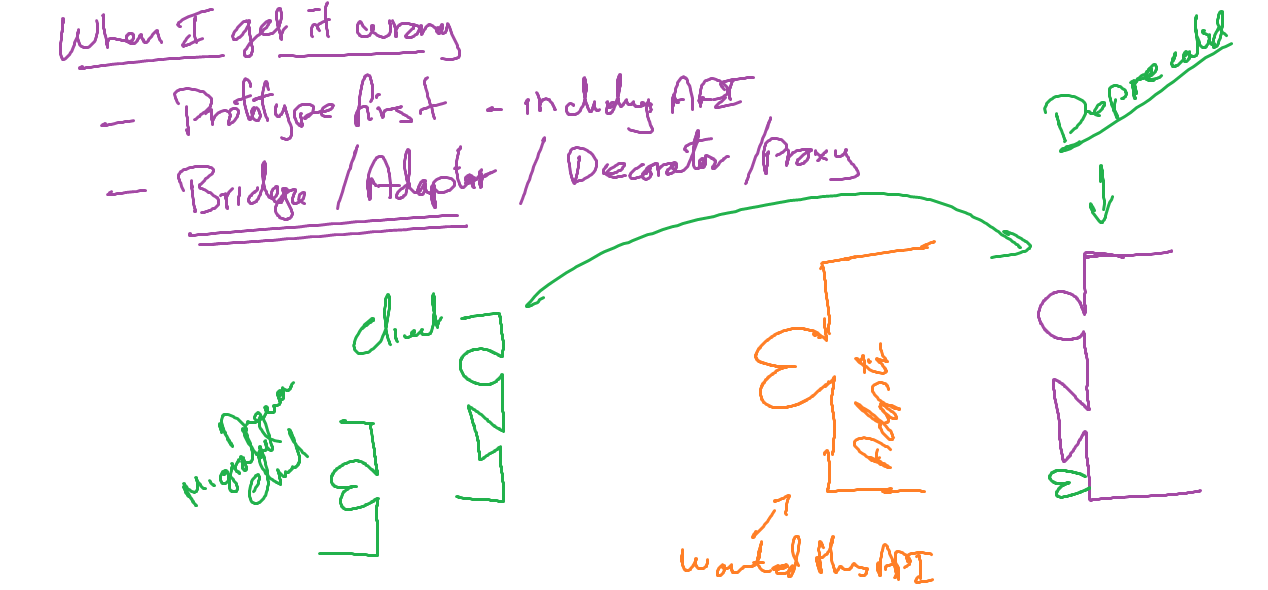 When I get it wrong
- Prototype first - including API
- Bridge / Adapter / Decorator / Proxy
Deprecated
Client
Migrated
Client
Adapter
Wanted this API